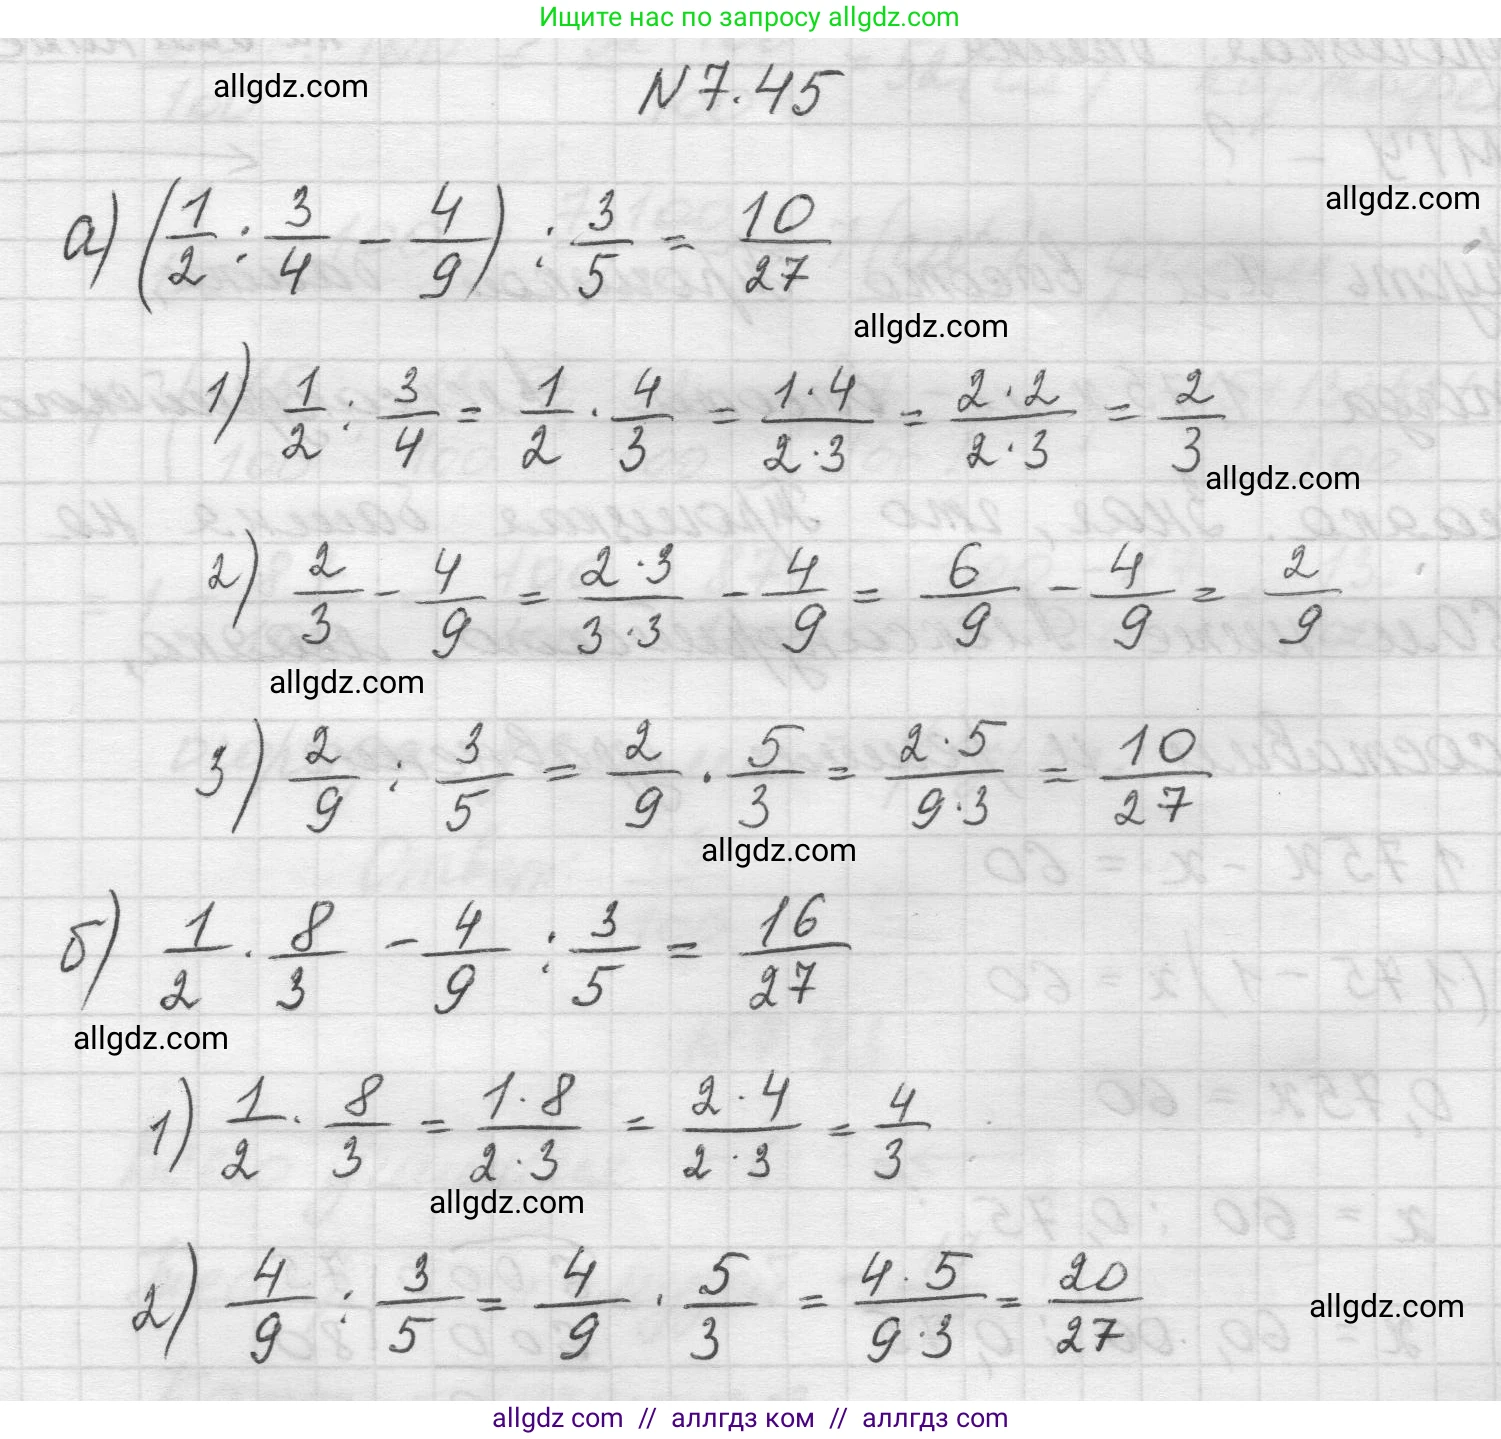 Ищите нас по запросу allgdz.com
allgdz.com
N 7.45
allgdz.com
а) (1/2 : 3/4 - 4/9) : 3/5 = 10/27
allgdz.com
1) 1/2 : 3/4 = 1/2 · 4/3 = 1·4/2·3 = 2·2/2·3 = 2/3
allgdz.com
2) 2/3 - 4/9 = 2·3/3·3 - 4/9 = 6/9 - 4/9 = 2/9
allgdz.com
3) 2/9 : 3/5 = 2/9 · 5/3 = 2·5/9·3 = 10/27
allgdz.com
б) 1/2 · 8/3 - 4/9 : 3/5 = 16/27
allgdz.com
1) 1/2 · 8/3 = 1·8/2·3 = 2·4/2·3 = 4/3
allgdz.com
2) 4/9 : 3/5 = 4/9 · 5/3 = 4·5/9·3 = 20/27
allgdz.com
allgdz com // аллгдз ком // аллгдз com